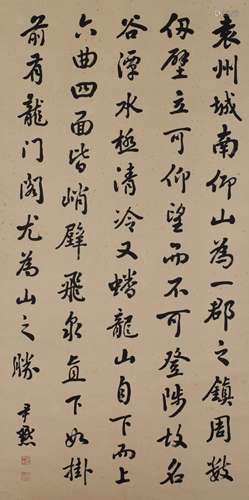 袁州城南仰山為一郡之鎮周數
仭壁立可仰望而不可登陟故名
谷潭水極清冷又蟠龍山自下而上
六曲四面皆峭壁飛泉直下如掛
前有龍门阁尤為山之勝 尹默